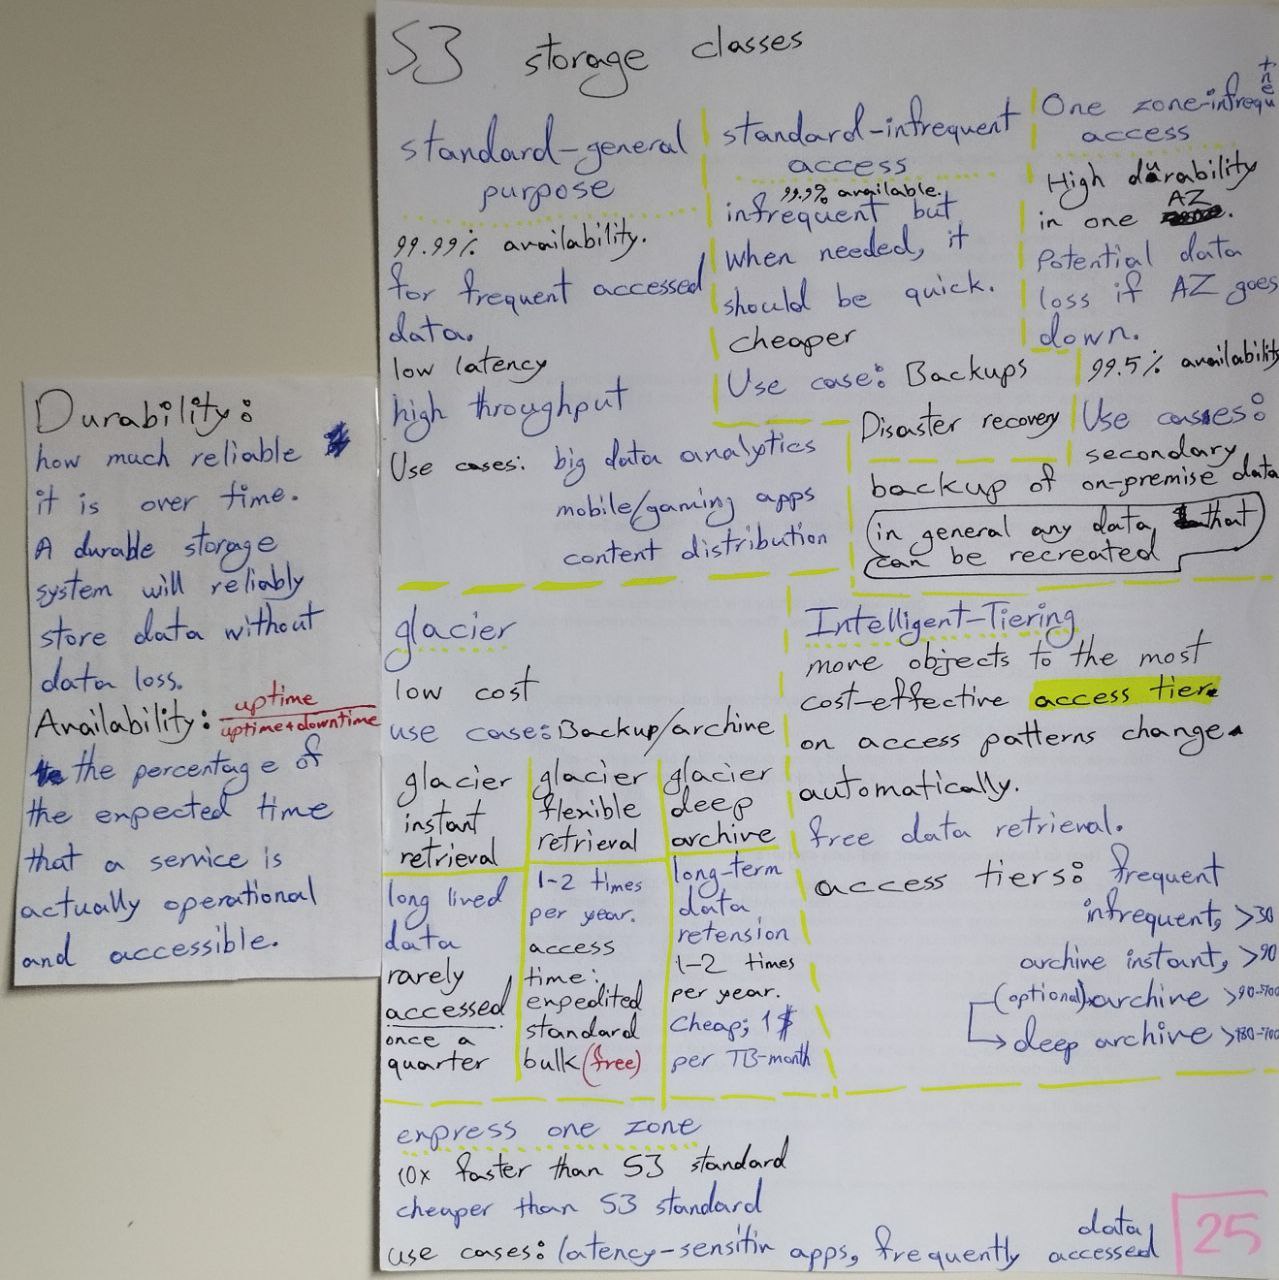 S3 storage classes
standard-general
purpose
99.99% availability.
for frequent accessed
data.
low latency
high throughput
Use cases: big data analytics
mobile/gaming apps
content distribution
standard-infrequent
access
99.9% available.
infrequent but
when needed, it
should be quick.
cheaper
Use case: Backups
Disaster recovery
One zone-infrequent
access
High durability
in one AZ.
Potential data
loss if AZ goes
down.
99.5% availability
Use cases:
secondary
backup of on-premise data
in general any data that
can be recreated
Durability:
how much reliable
it is over time.
A durable storage
system will reliably
store data without
data loss.
Availability: uptime
uptime+downtime
the percentage of
the expected time
that a service is
actually operational
and accessible.
glacier
low cost
use case: Backup/archive
glacier
instant
retrieval
long lived
data
rarely
accessed
once a
quarter
glacier
flexible
retrieval
1-2 times
per year.
access
time:
expedited
standard
bulk (free)
glacier
deep
archive
long-term
data
retension
1-2 times
per year.
Cheap; 1$
per TB-month
Intelligent-Tiering
more objects to the most
cost-effective access tier
on access patterns change.
automatically.
free data retrieval.
access tiers: frequent
infrequent, >30
archive instant, >90
(optional) archive >90-700
deep archive >180-700
express one zone
10x faster than S3 standard
cheaper than S3 standard
use cases: latency-sensitiv apps, frequently accessed
data
25